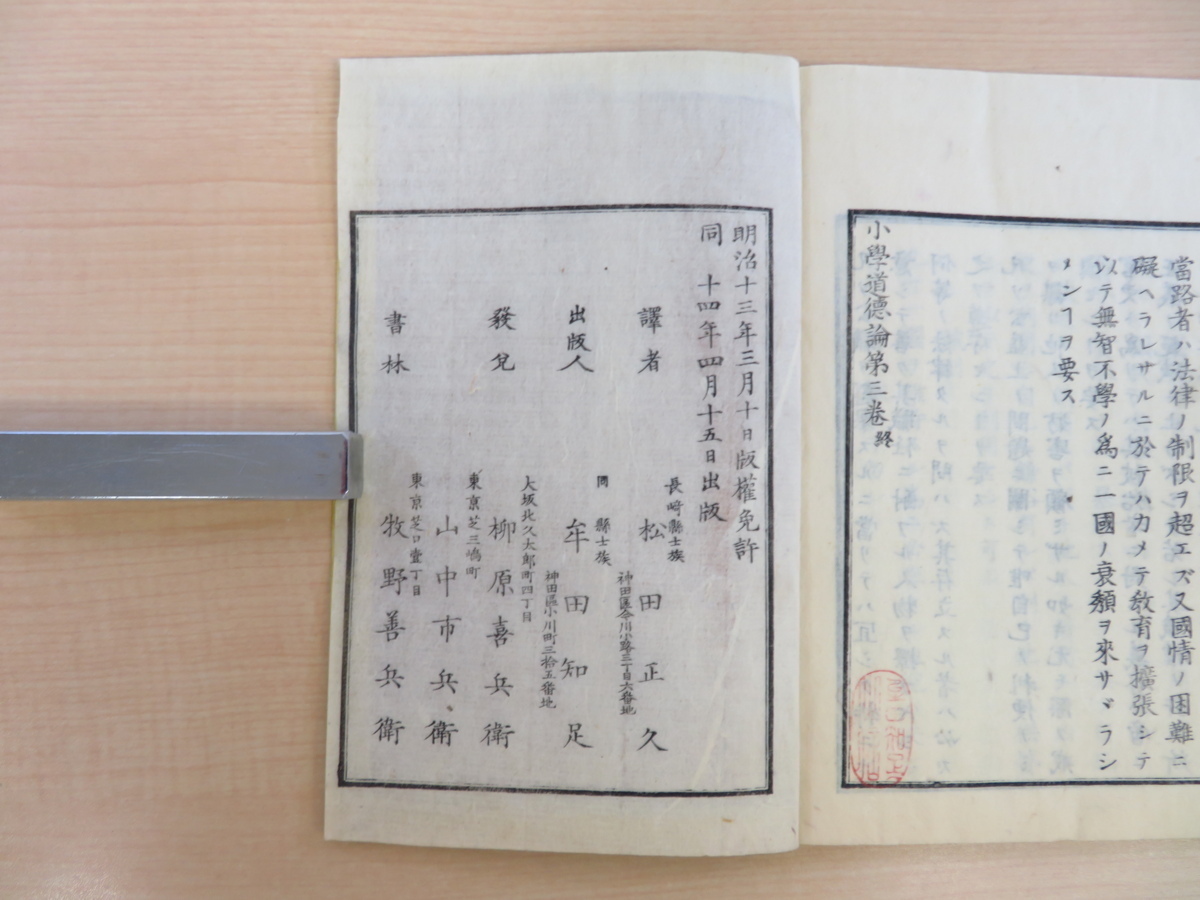 當路者ハ法律ノ制限ヲ超エズ又國情ノ困難ニ
礙ヘラレサルニ於テハカメテ教育ヲ擴張シテ
以テ無智不學ノ爲ニ一國ノ衰頽ヲ來サヾラシ
メンヿヲ要ス
小學道德論第三卷終
明治十三年三月十日版權免許
同 十四年四月十五日出版
長崎縣士族
譯者 松田正久
神田區今川小路三丁目六番地
同 縣士族
出版人 牟田知足
神田區小川町三拾五番地
大坂北久太郎町四丁目
發兌 柳原喜兵衛
東京芝三嶋町
山中市兵衛
東京芝口壹丁目
書林 牧野善兵衛